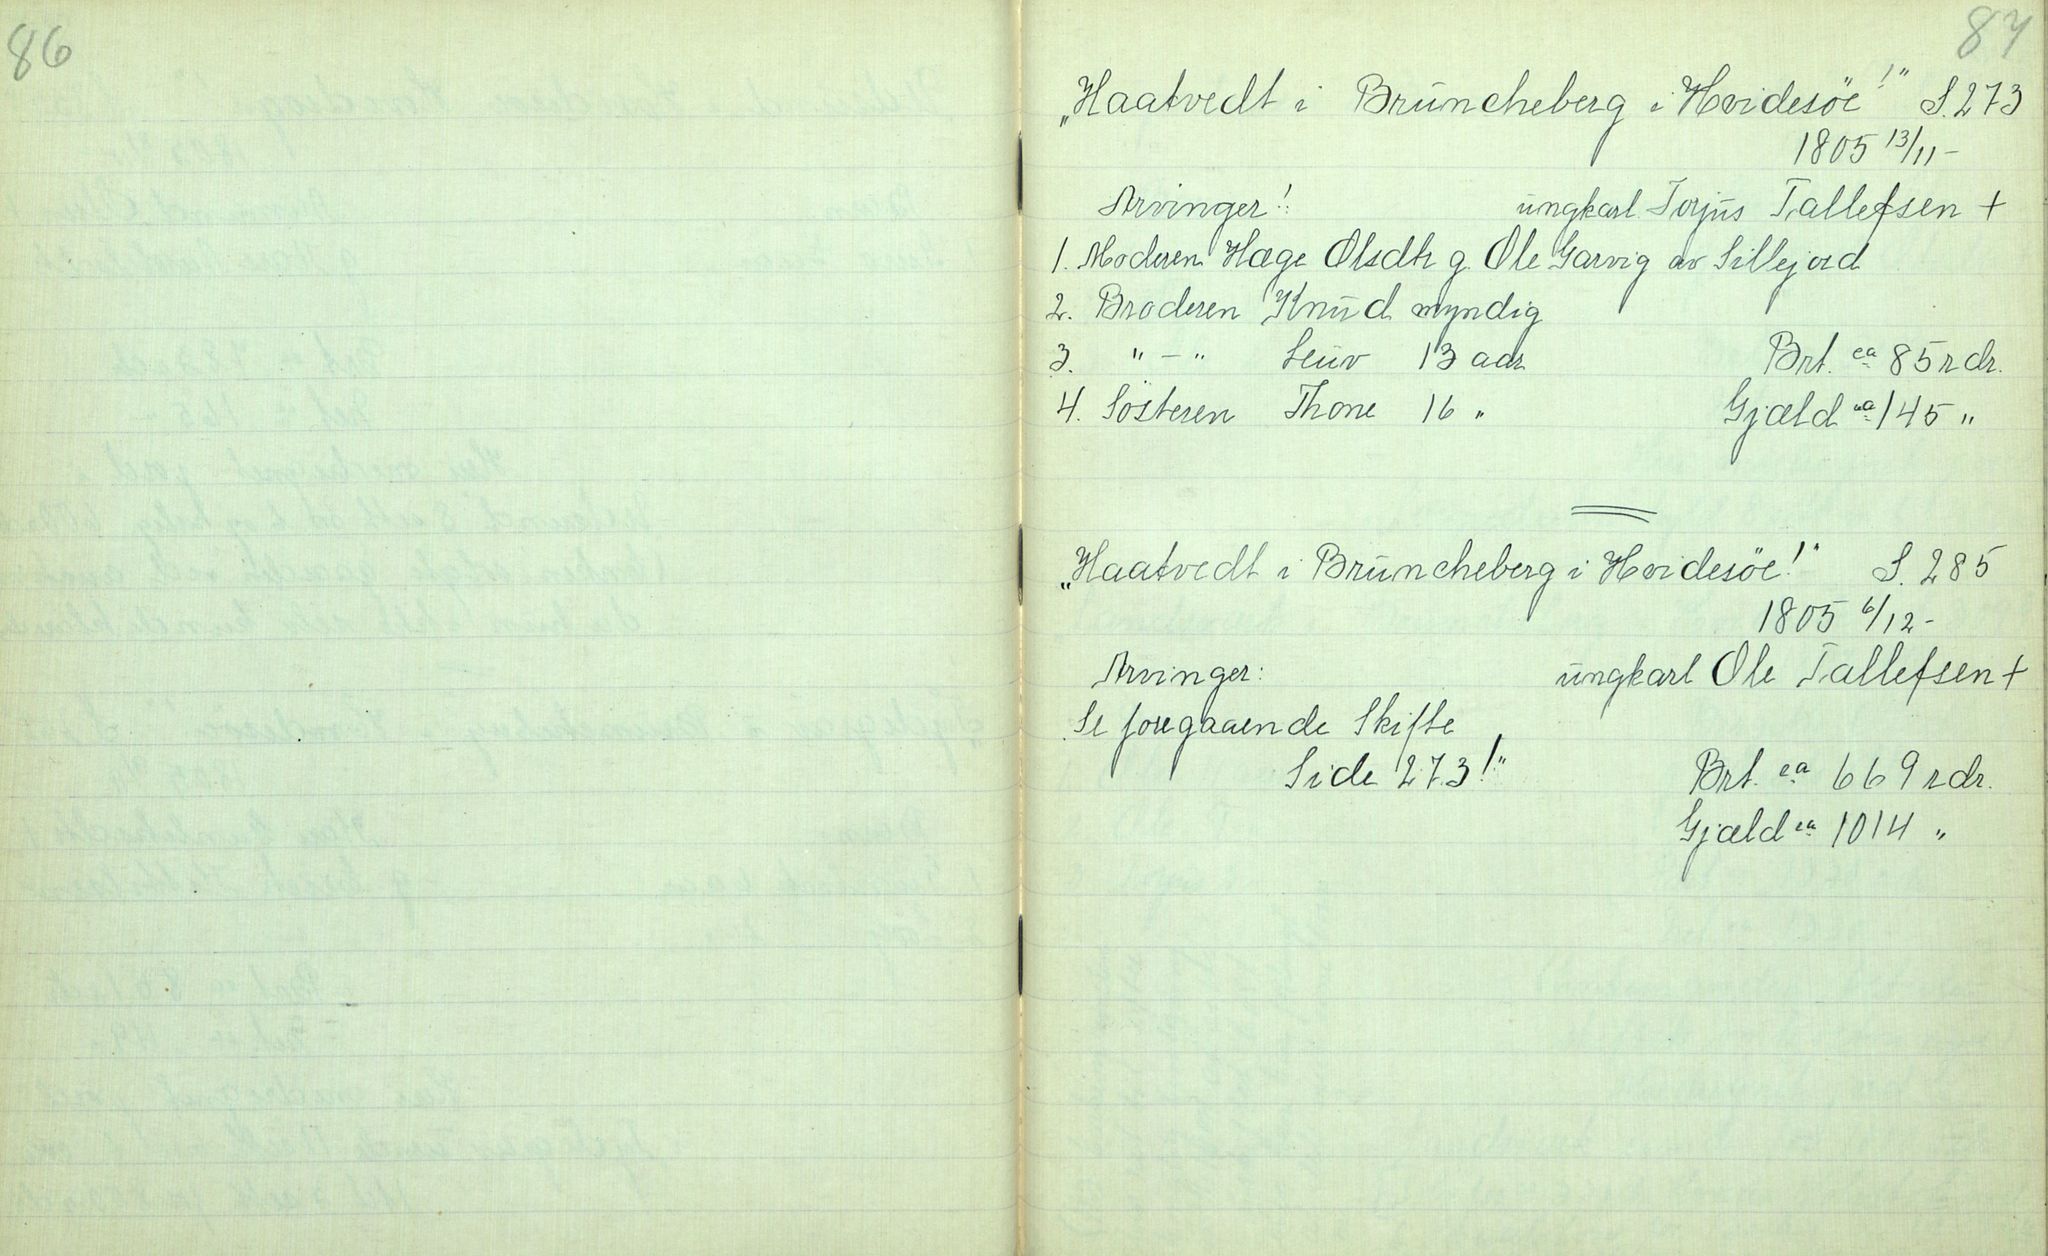 86
87
„Haatvedt i Brüncheberg i Hvidesöe!" S. 273
1805 13/11 –
Arvinger!: ungkarl Torjüs Tallefsen +
1. Moderen Hæge Olsdtr g. Ole Garvig av Sillejord
2. Broderen Knüd myndig
3. " – " Leüv 13 aar Brt. ca 85 rdr.
4. Sösteren Thone 16 " Gjæld ca 145 "
„Haatvedt i Brüncheberg i Hvidesöe!" S. 285
1805 6/12 –
Arvinger: üngkarl Ole Tallefsen +
Se foregaaende Skifte
Side 273!" Brt. ca 669 rdr.
Gjæld ca 1014 "